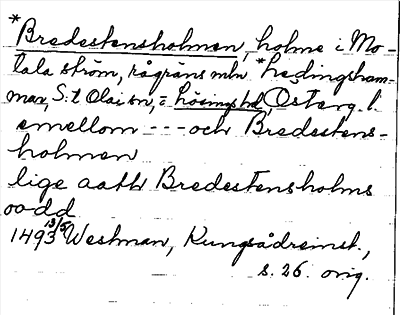 *Bredestensholmen, holme i Mo-
tala ström, rågräns mln *Ledingsham-
mar, S:t Olai sn, = Lösings hd, Österg. l.
emellom - - - och Bredestens-
holmen
lige aath Bredestensholms
oodd
1493 13/5 Westman, Kungsådreinst.,
s. 26. orig.